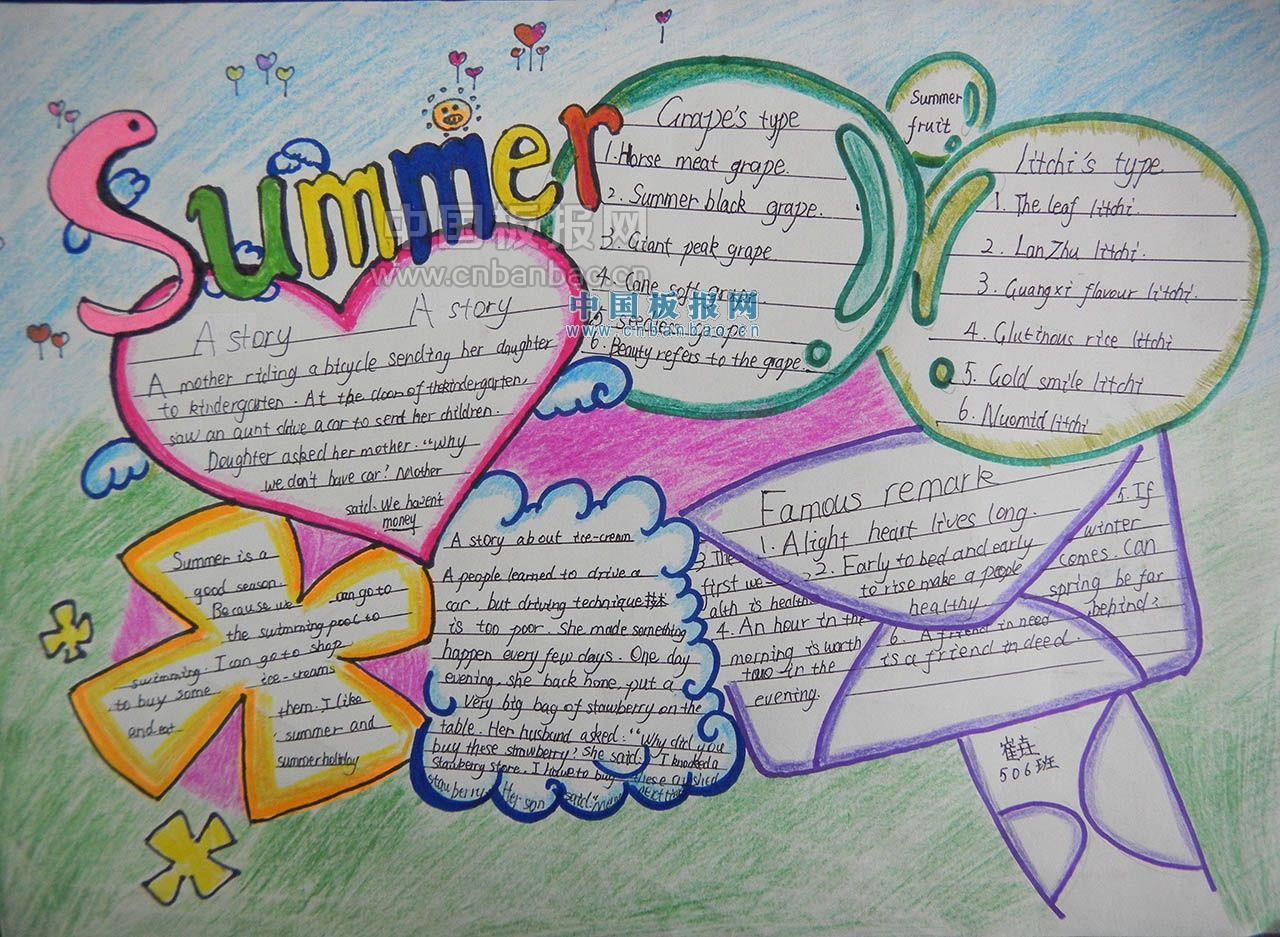 Summer
A story
A story
A mother riding a bicycle sending her daughter
to kindergarten. At the door of the kindergarten,
saw an aunt drive a car to send her children.
Daughter asked her mother: "Why
we don't have car? Mother
said. We haven't
money
Grape's type
1. Horse meat grape.
2. Summer black grape.
3. Giant peak grape
4. Cane soft
6. Beauty refers to the grape.
Summer
fruit
Litchi's type
1. The leaf litchi.
2. LanZhu litchi.
3. Guangxi flavour litchi.
4. Glutinous rice litchi
5. Gold smile litchi
6. Nuomid litchi
中国板报网
www.cnbanbao.cn
中国板报网
www.cnbanbao.cn
Summer is a
good season.
Because we can go to
the swimming pool to
swimming. I can go to shop
to buy some ice-creams
and eat them. I like
summer and
summer holiday
A story about ice-cream
A people learned to drive a
car, but driving technique
is too poor. She made something
happen every few days. One day
evening, she back home, put a
very big bag of stawberry on the
table. Her husband asked: "Why did you
buy these strawberry? She said: I knocked a
stawberry store. I have to buy these
Her son said:
Famous remark
1. A light heart lives long.
2. Early to bed and early
to rise make a people
healthy
3. The
first we-
alth is health
4. An hour in the
morning is worth
two in the
evening.
5. If
winter
comes. Can
spring be far
behind?
6. A friend in need
is a friend in deed.
506班